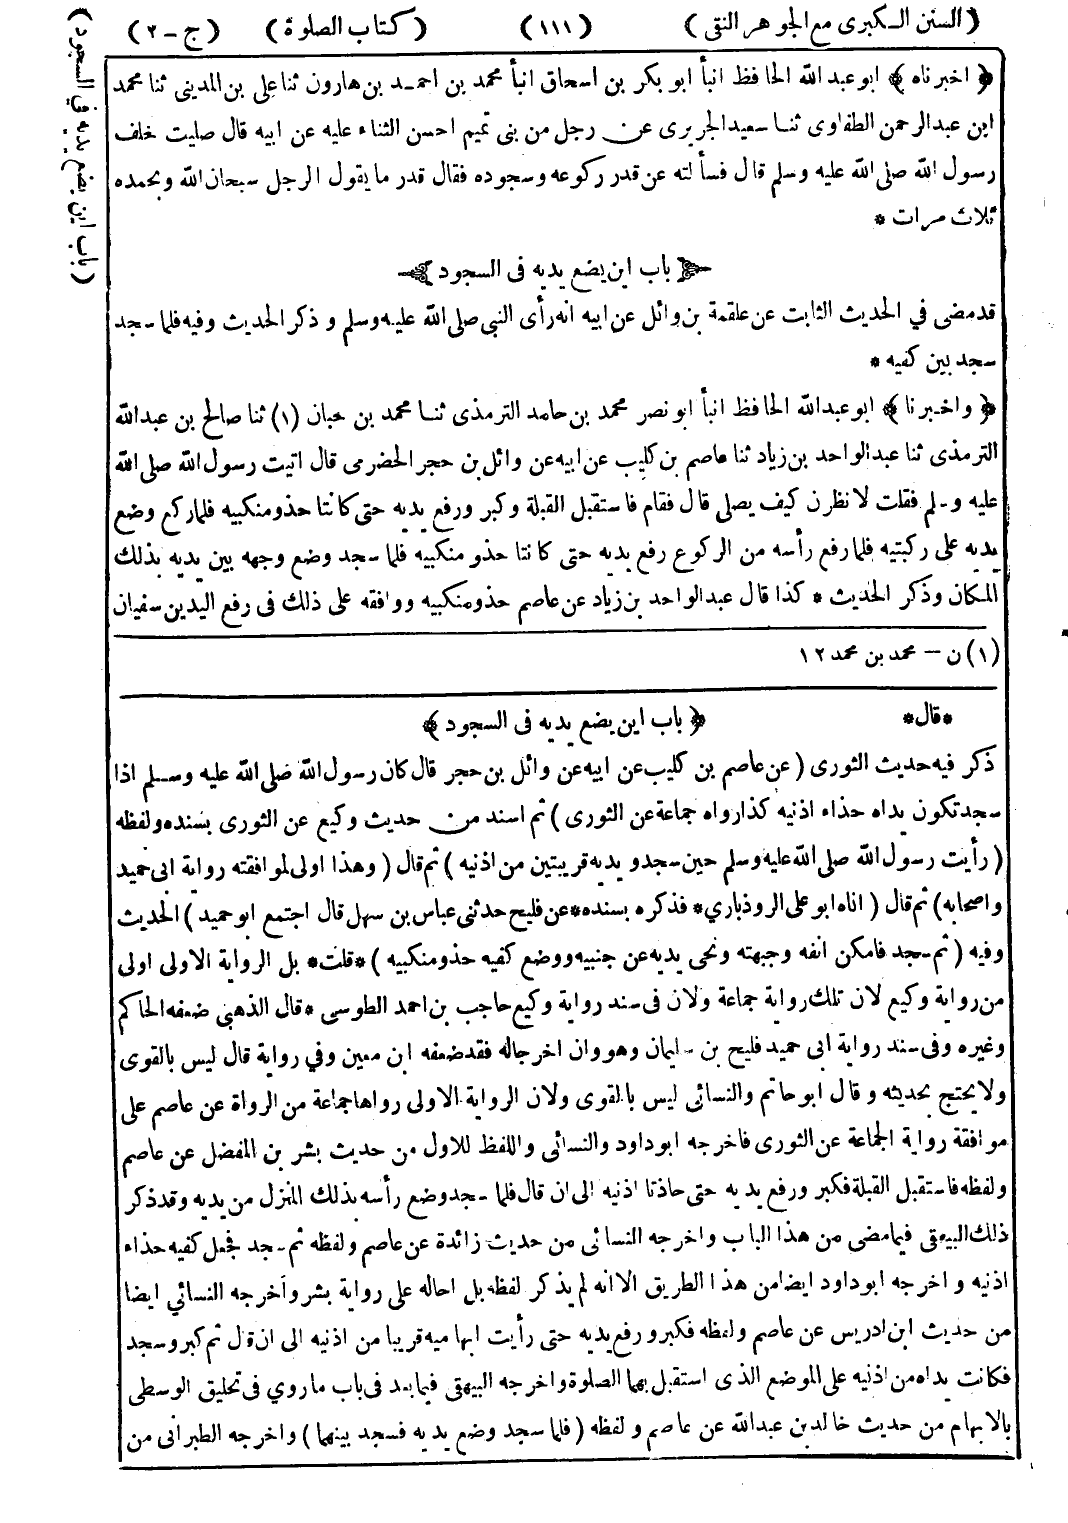 (السنن الكبرى مع الجوهر النقى) (١١١) (كتاب الصلوة) (ج-٢)
(باب اين يضع يديه في السجود)
﴿ اخبرناه ﴾ ابو عبد الله الحافظ انبأ ابو بكر بن اسحاق انبأ محمد بن احمد بن هارون ثنا على بن المدينى ثنا محمد
ابن عبد الرحمن الطفاوى ثنا سعيد الجريرى عن رجل من بنى تميم احسن الثناء عليه عن ابيه قال صليت خلف
رسول الله صلى الله عليه وسلم قال فسألته عن قدر ركوعه وسجوده فقال قدر ما يقول الرجل سبحان الله وبحمده
ثلاث مرات *
باب اين يضع يديه فى السجود
قد مضى في الحديث الثابت عن علقمة بن وائل عن ابيه انه رأى النبي صلى الله عليه وسلم و ذكر الحديث وفيه فلما سجد
سجد بين كفيه *
﴿ واخبرنا ﴾ ابو عبد الله الحافظ انبأ ابو نصر محمد بن حامد الترمذى ثنا محمد بن حبان (١) ثنا صالح بن عبد الله
الترمذى ثنا عبد الواحد بن زياد ثنا عاصم بن كليب عن ابيه عن وائل بن حجر الحضرمى قال اتيت رسول الله صلى الله
عليه وسلم فقلت لانظرن كيف يصلى قال فقام فاستقبل القبلة وكبر ورفع يديه حتى كانتا حذو منكبيه فلما ركع وضع
يديه على ركبتيه فلما رفع رأسه من الركوع رفع يديه حتى كانتا حذو منكبيه فلما سجد وضع وجهه بين يديه بذلك
المكان وذكر الحديث * كذا قال عبد الواحد بن زياد عن عاصم حذو منكبيه ووافقه على ذلك فى رفع اليدين سفيان
(١) ن - محمد بن محمد ١٢
*قال* ﴿ باب اين يضع يديه فى السجود ﴾
ذكر فيه حديث الثورى ( عن عاصم بن كليب عن ابيه عن وائل بن حجر قال كان رسول الله صلى الله عليه وسلم اذا
سجد تكون يداه حذاء اذنيه كذا رواه جماعة عن الثورى ) ثم اسند من حديث وكيع عن الثورى بسنده ولفظه
( رأيت رسول الله صلى الله عليه وسلم حين سجد ويديه قريبتين من اذنيه ) ثم قال ( وهذا اولى لموافقته رواية ابى حميد
واصحابه) ثم قال ( اناه ابو على الروذباري* فذكره بسنده*عن فليح حدثنى عباس بن سهل قال اجتمع ابو حميد ) الحديث
وفيه ( ثم سجد فامكن انفه وجبهته ونحى يديه عن جنبيه ووضع كفيه حذو منكبيه ) *قلت* بل الرواية الاولى اولى
من رواية وكيع لان تلك رواية جماعة ولان فى سند رواية وكيع حاجب بن احمد الطوسى * قال الذهبي ضعفه الحاكم
وغيره وفى سند رواية ابى حميد فليح بن سليمان وهو وان اخرجا له فقد ضعفه ابن معين وفي رواية قال ليس بالقوى
ولا يحتج بحديثه و قال ابو حاتم والنسائى ليس بالقوى ولان الرواية الاولى رواها جماعة من الرواة عن عاصم على
موافقة رواية الجماعة عن الثورى فاخرجه ابو داود والنسائى واللفظ للاول من حديث بشر بن المفضل عن عاصم
ولفظه فاستقبل القبلة فكبر ورفع يديه حتى حاذتا اذنيه الى ان قال فلما سجد وضع رأسه بذلك المنزل من يديه وقد ذكر
ذلك البيهقى فيما مضى من هذا الباب واخرجه النسائى من حديث زائدة عن عاصم ولفظه ثم سجد فجعل كفيه حذاء
اذنيه و اخرجه ابو داود ايضا من هذا الطريق الا انه لم يذكر لفظه بل احاله على رواية بشر وأخرجه النسائي ايضا
من حديث ابن ادريس عن عاصم ولفظه فكبر ورفع يديه حتى رأيت ابهاميه قريبا من اذنيه الى ان قال ثم كبر وسجد
فكانت يداه من اذنيه على الموضع الذى استقبل بهما الصلوة واخرجه البيهقى فيما بعد فى باب ما روي فى تحليق الوسطى
بالابهام من حديث خالد بن عبد الله عن عاصم و لفظه ( فلما سجد وضع يديه فسجد بينهما ) واخرجه الطبرانى من